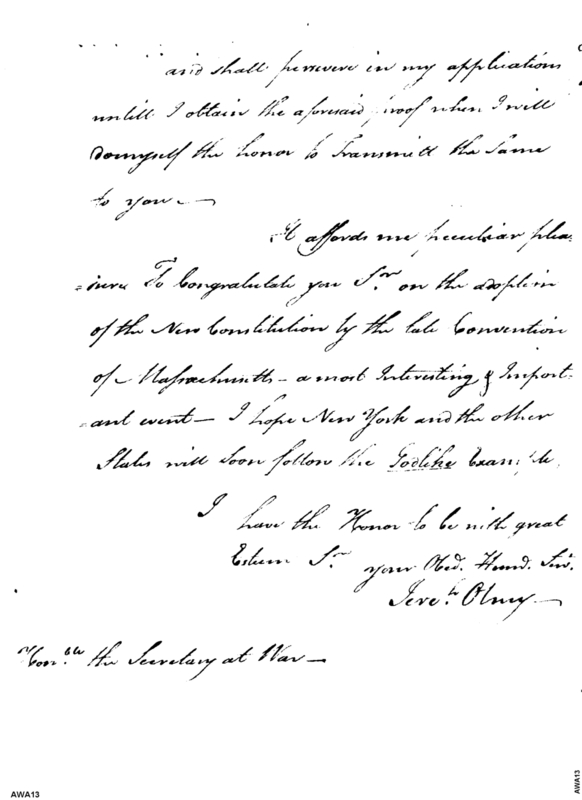 and shall persevere in my applications
untill I obtain the aforesaid proof when I will
domyself the honor to Transmitt the Same
to you —
It affords me peculiar plea=
=sure To Congratulate you Sr. on the adoption
of the New Constitution by the late Convention
of Massachusetts - a most Interesting & Import=
=ant event — I hope New York and the other
States will Soon follow the Godlike Example.
I have the Honor to be with great
Esteem Sr. your Obed. Humb. Servt.
Jereh. Olney —
Honble the Secretary at War —
AWA13
AWA13